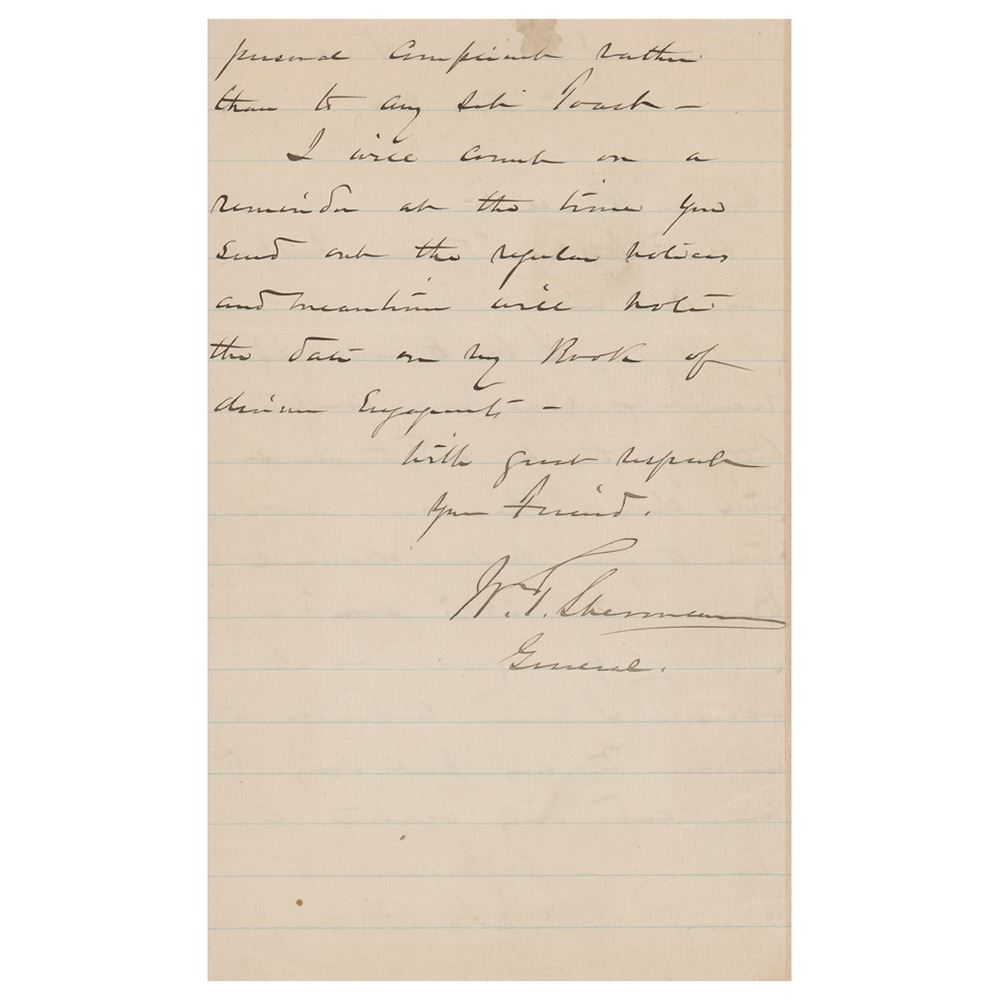 personal compliment rather
than to any set Toast –
I will count on a
reminder at the time you
send out the regular notices
and meantime will note
the date on my Book of
dinner Engagements –
With great respect
Your friend.
W. T. Sherman
General.